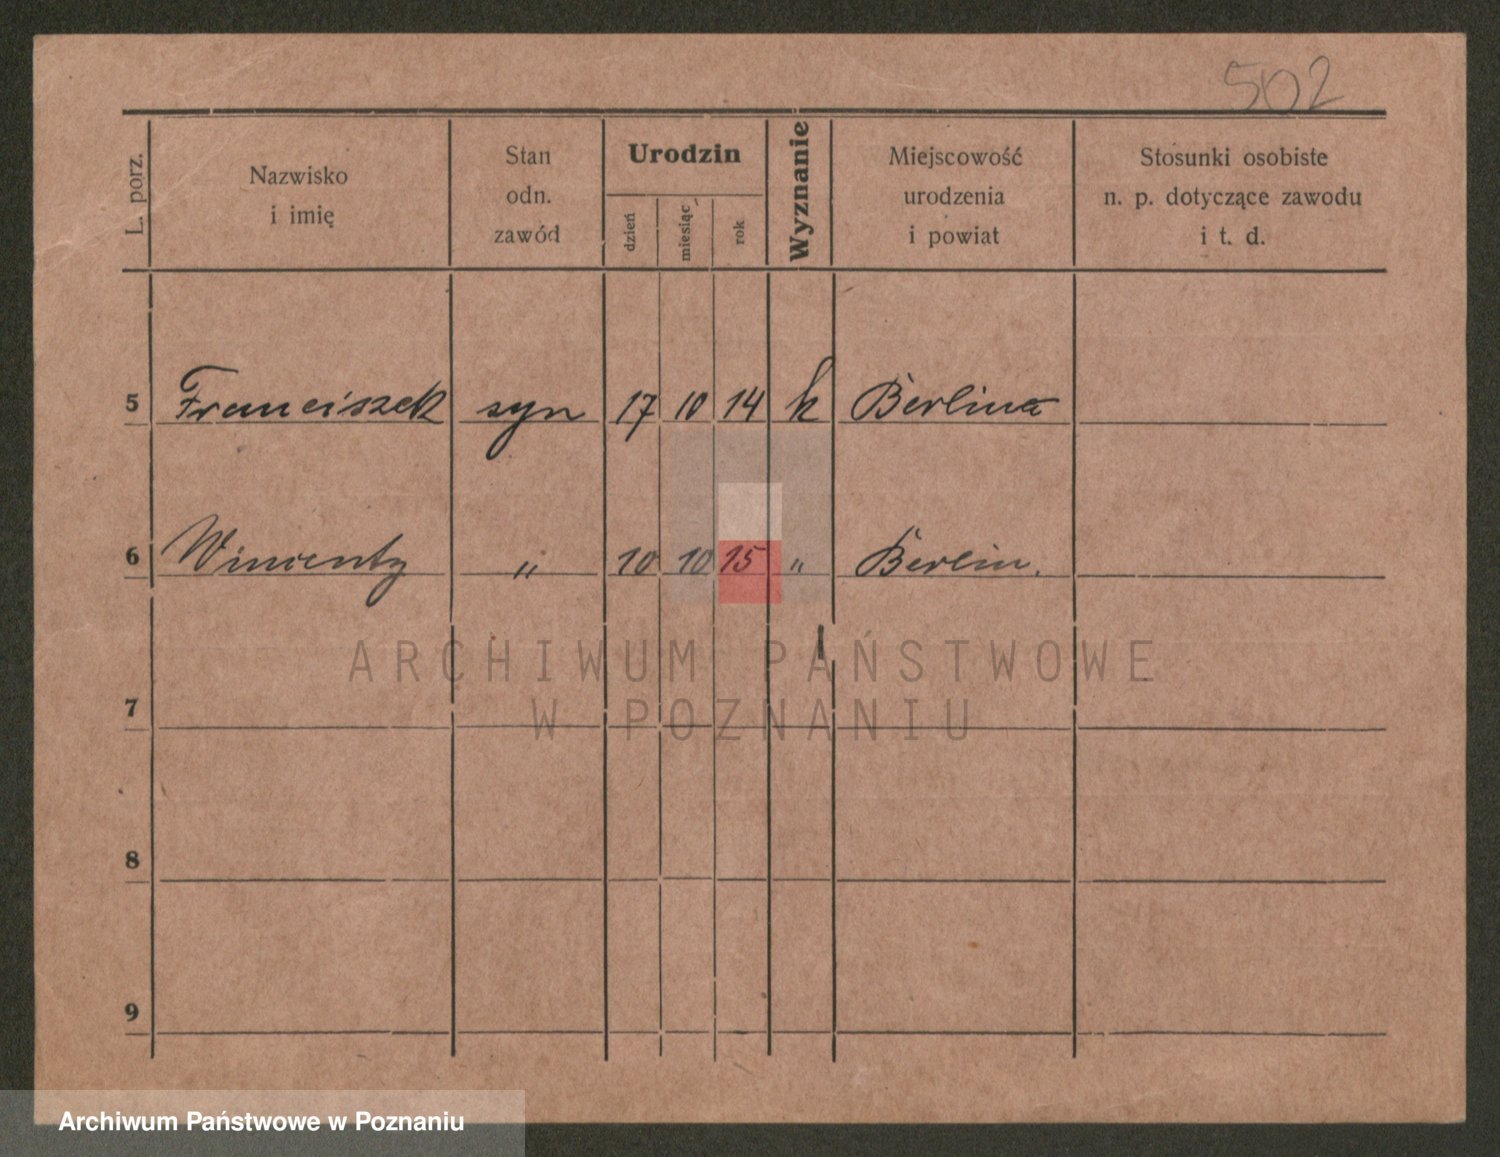 502
L. porz.
Nazwisko i imię
Stan odn. zawód
Urodzin
dzień
miesiąc
rok
Wyznanie
Miejscowość urodzenia i powiat
Stosunki osobiste n. p. dotyczące zawodu i t. d.
5 Franciszek syn 17 10 14 k Berlina
6 Wincenty " 10 10 15 " Berlin.
7
8
9
ARCHIWUM PAŃSTWOWE
W POZNANIU
Archiwum Państwowe w Poznaniu